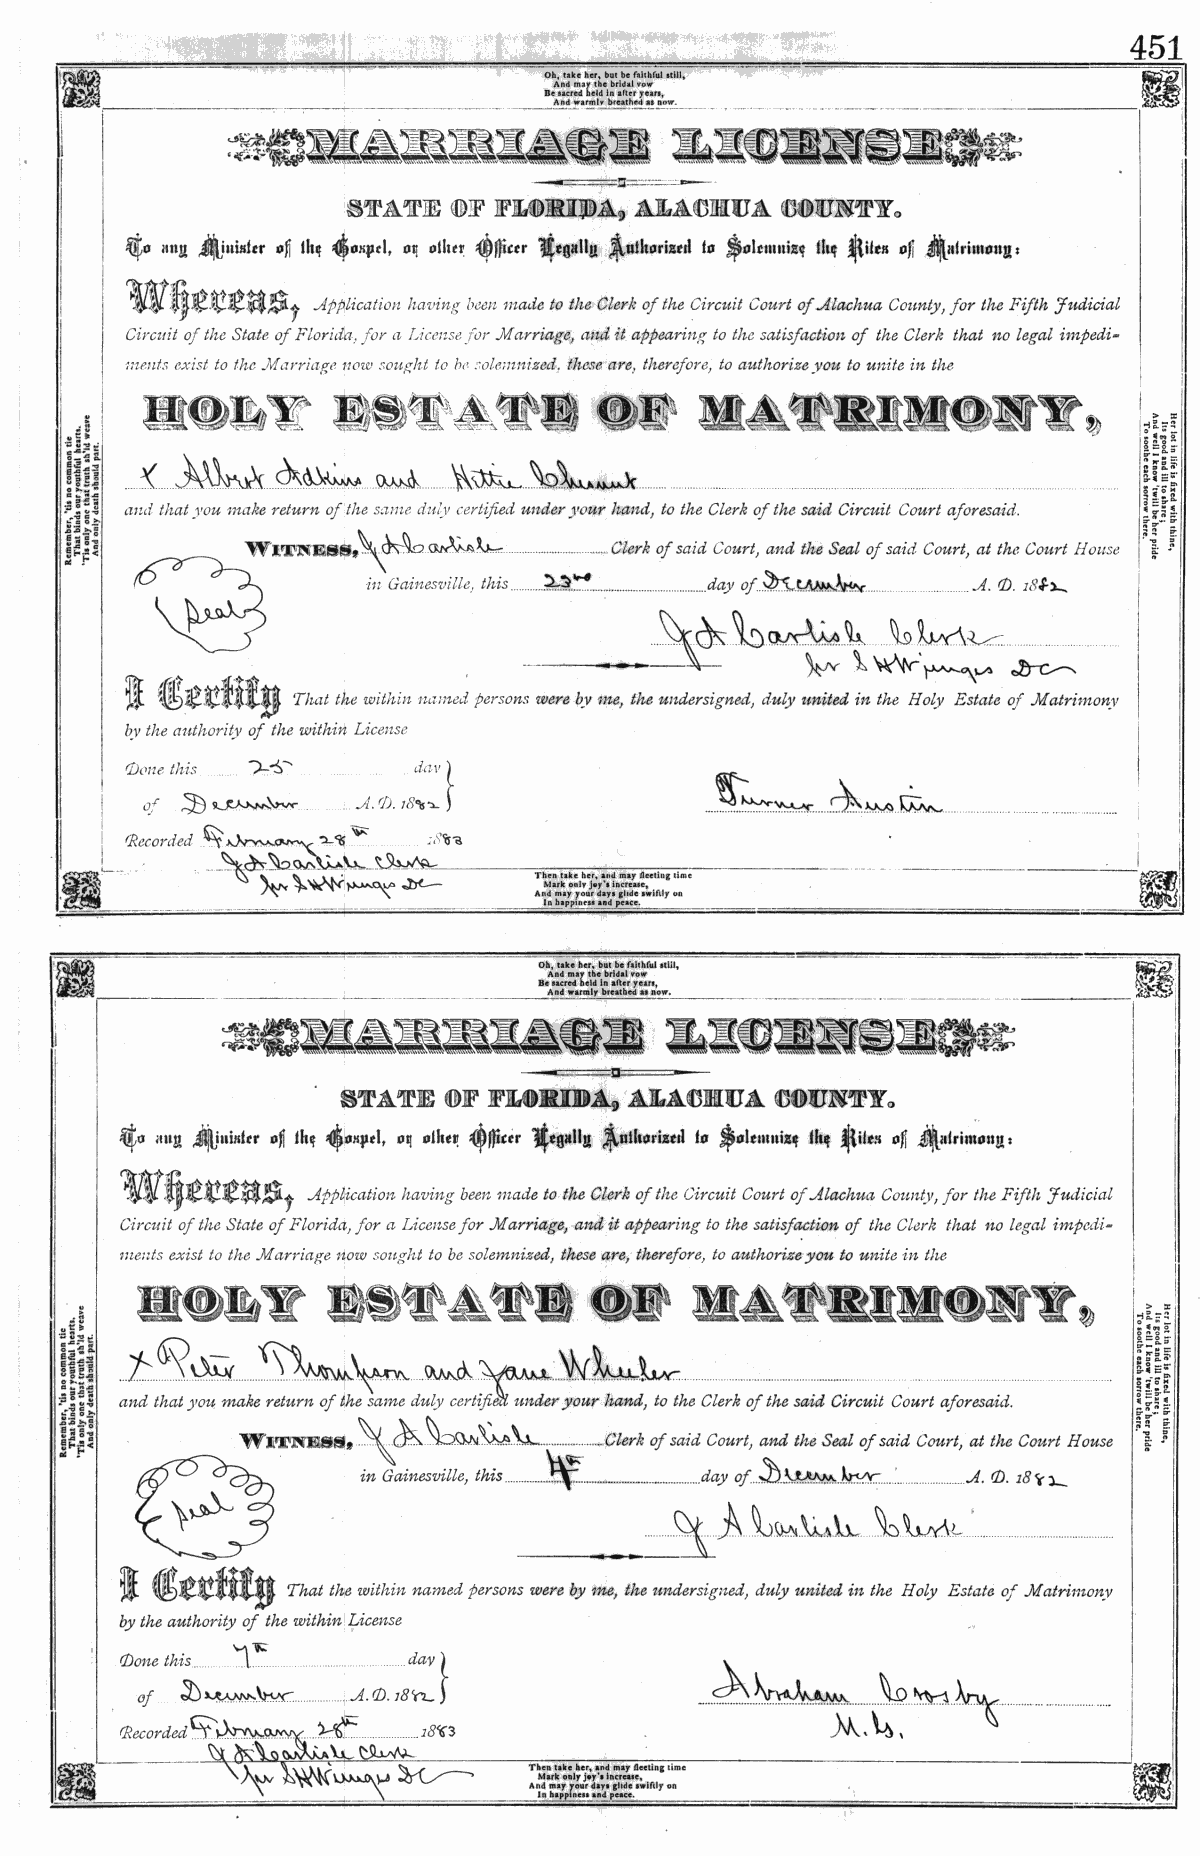 451
Oh, take her, but be faithful still,
And may the bridal vow
Be sacred held in after years,
And warmly breathed as now.
MARRIAGE LICENSE
STATE OF FLORIDA, ALACHUA COUNTY.
To any Minister of the Gospel, or other Officer Legally Authorized to Solemnize the Rites of Matrimony:
Whereas, Application having been made to the Clerk of the Circuit Court of Alachua County, for the Fifth Judicial
Circuit of the State of Florida, for a License for Marriage, and it appearing to the satisfaction of the Clerk that no legal impedi-
ments exist to the Marriage now sought to be solemnized, these are, therefore, to authorize you to unite in the
HOLY ESTATE OF MATRIMONY,
x Albert Adkins and Hittie Chesnut
and that you make return of the same duly certified under your hand, to the Clerk of the said Circuit Court aforesaid.
WITNESS, J A Carlisle Clerk of said Court, and the Seal of said Court, at the Court House
in Gainesville, this 23rd day of December A. D. 1882
Seal
J A Carlisle Clerk
per S H Wienges DC
I Certify That the within named persons were by me, the undersigned, duly united in the Holy Estate of Matrimony
by the authority of the within License
Done this 25 day
of December A. D. 1882
Turner Austin
Recorded February 28th 1883
J A Carlisle Clerk
per S H Wienges DC
Then take her, and may fleeting time
Mark only joy's increase,
And may your days glide swiftly on
In happiness and peace.
Remember, 'tis no common tie
That binds our youthful hearts,
'Tis only one that truth sh'ld weave
And only death should part.
Her lot in life is fixed with thine,
Its good and ill to share;
And well I know 'twill be her pride
To soothe each sorrow there.
Oh, take her, but be faithful still,
And may the bridal vow
Be sacred held in after years,
And warmly breathed as now.
MARRIAGE LICENSE
STATE OF FLORIDA, ALACHUA COUNTY.
To any Minister of the Gospel, or other Officer Legally Authorized to Solemnize the Rites of Matrimony:
Whereas, Application having been made to the Clerk of the Circuit Court of Alachua County, for the Fifth Judicial
Circuit of the State of Florida, for a License for Marriage, and it appearing to the satisfaction of the Clerk that no legal impedi-
ments exist to the Marriage now sought to be solemnized, these are, therefore, to authorize you to unite in the
HOLY ESTATE OF MATRIMONY,
x Peter Thompson and Jane Wheeler
and that you make return of the same duly certified under your hand, to the Clerk of the said Circuit Court aforesaid.
WITNESS, J A Carlisle Clerk of said Court, and the Seal of said Court, at the Court House
in Gainesville, this 4th day of December A. D. 1882
Seal
J A Carlisle Clerk
I Certify That the within named persons were by me, the undersigned, duly united in the Holy Estate of Matrimony
by the authority of the within License
Done this 7th day
of December A. D. 1882
Abraham Crosby
M. G.
Recorded February 28th 1883
J A Carlisle Clerk
per S H Wienges DC
Then take her, and may fleeting time
Mark only joy's increase,
And may your days glide swiftly on
In happiness and peace.
Remember, 'tis no common tie
That binds our youthful hearts,
'Tis only one that truth sh'ld weave
And only death should part.
Her lot in life is fixed with thine,
Its good and ill to share;
And well I know 'twill be her pride
To soothe each sorrow there.